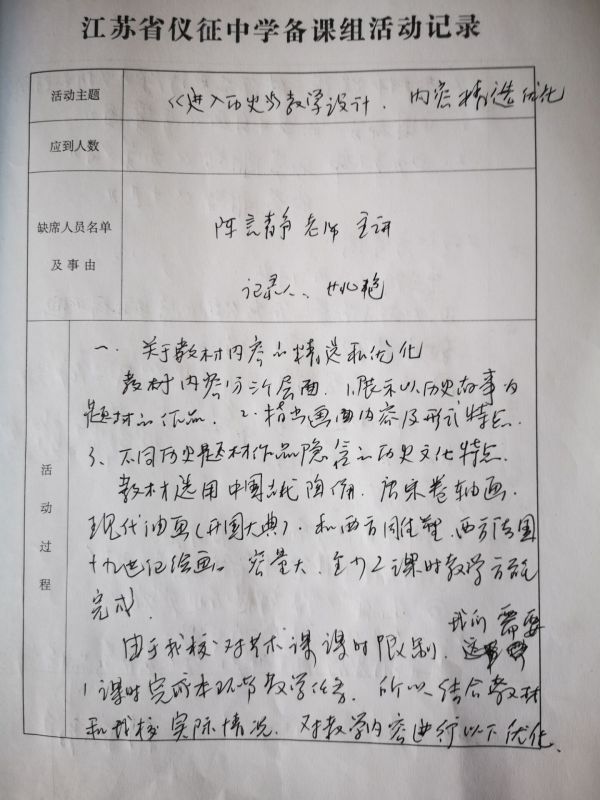 江苏省仪征中学备课组活动记录
活动主题
《进入历史》教学设计. 内容精选优化
应到人数
缺席人员名单
及事由
陈言静老师 主讲
记录人、
活动过程
一. 关于教材内容的精选和优化
教材内容分三个层面. 1.展示以历史故事为
题材的作品. 2.指出画面内容及形式特点.
3、不同历史题材作品隐含的历史文化特点.
教材选用中国古代陶俑. 唐宋卷轴画.
现代油画(开国大典). 和西方雕塑、西方法国
十九世纪绘画。容量大. 至少2课时教学方能
完成.
由于我校对艺术课课时限制. 我们需要
1课时完成本环节教学任务. 所以结合教材
和我校实际情况. 对教学内容进行以下优化、